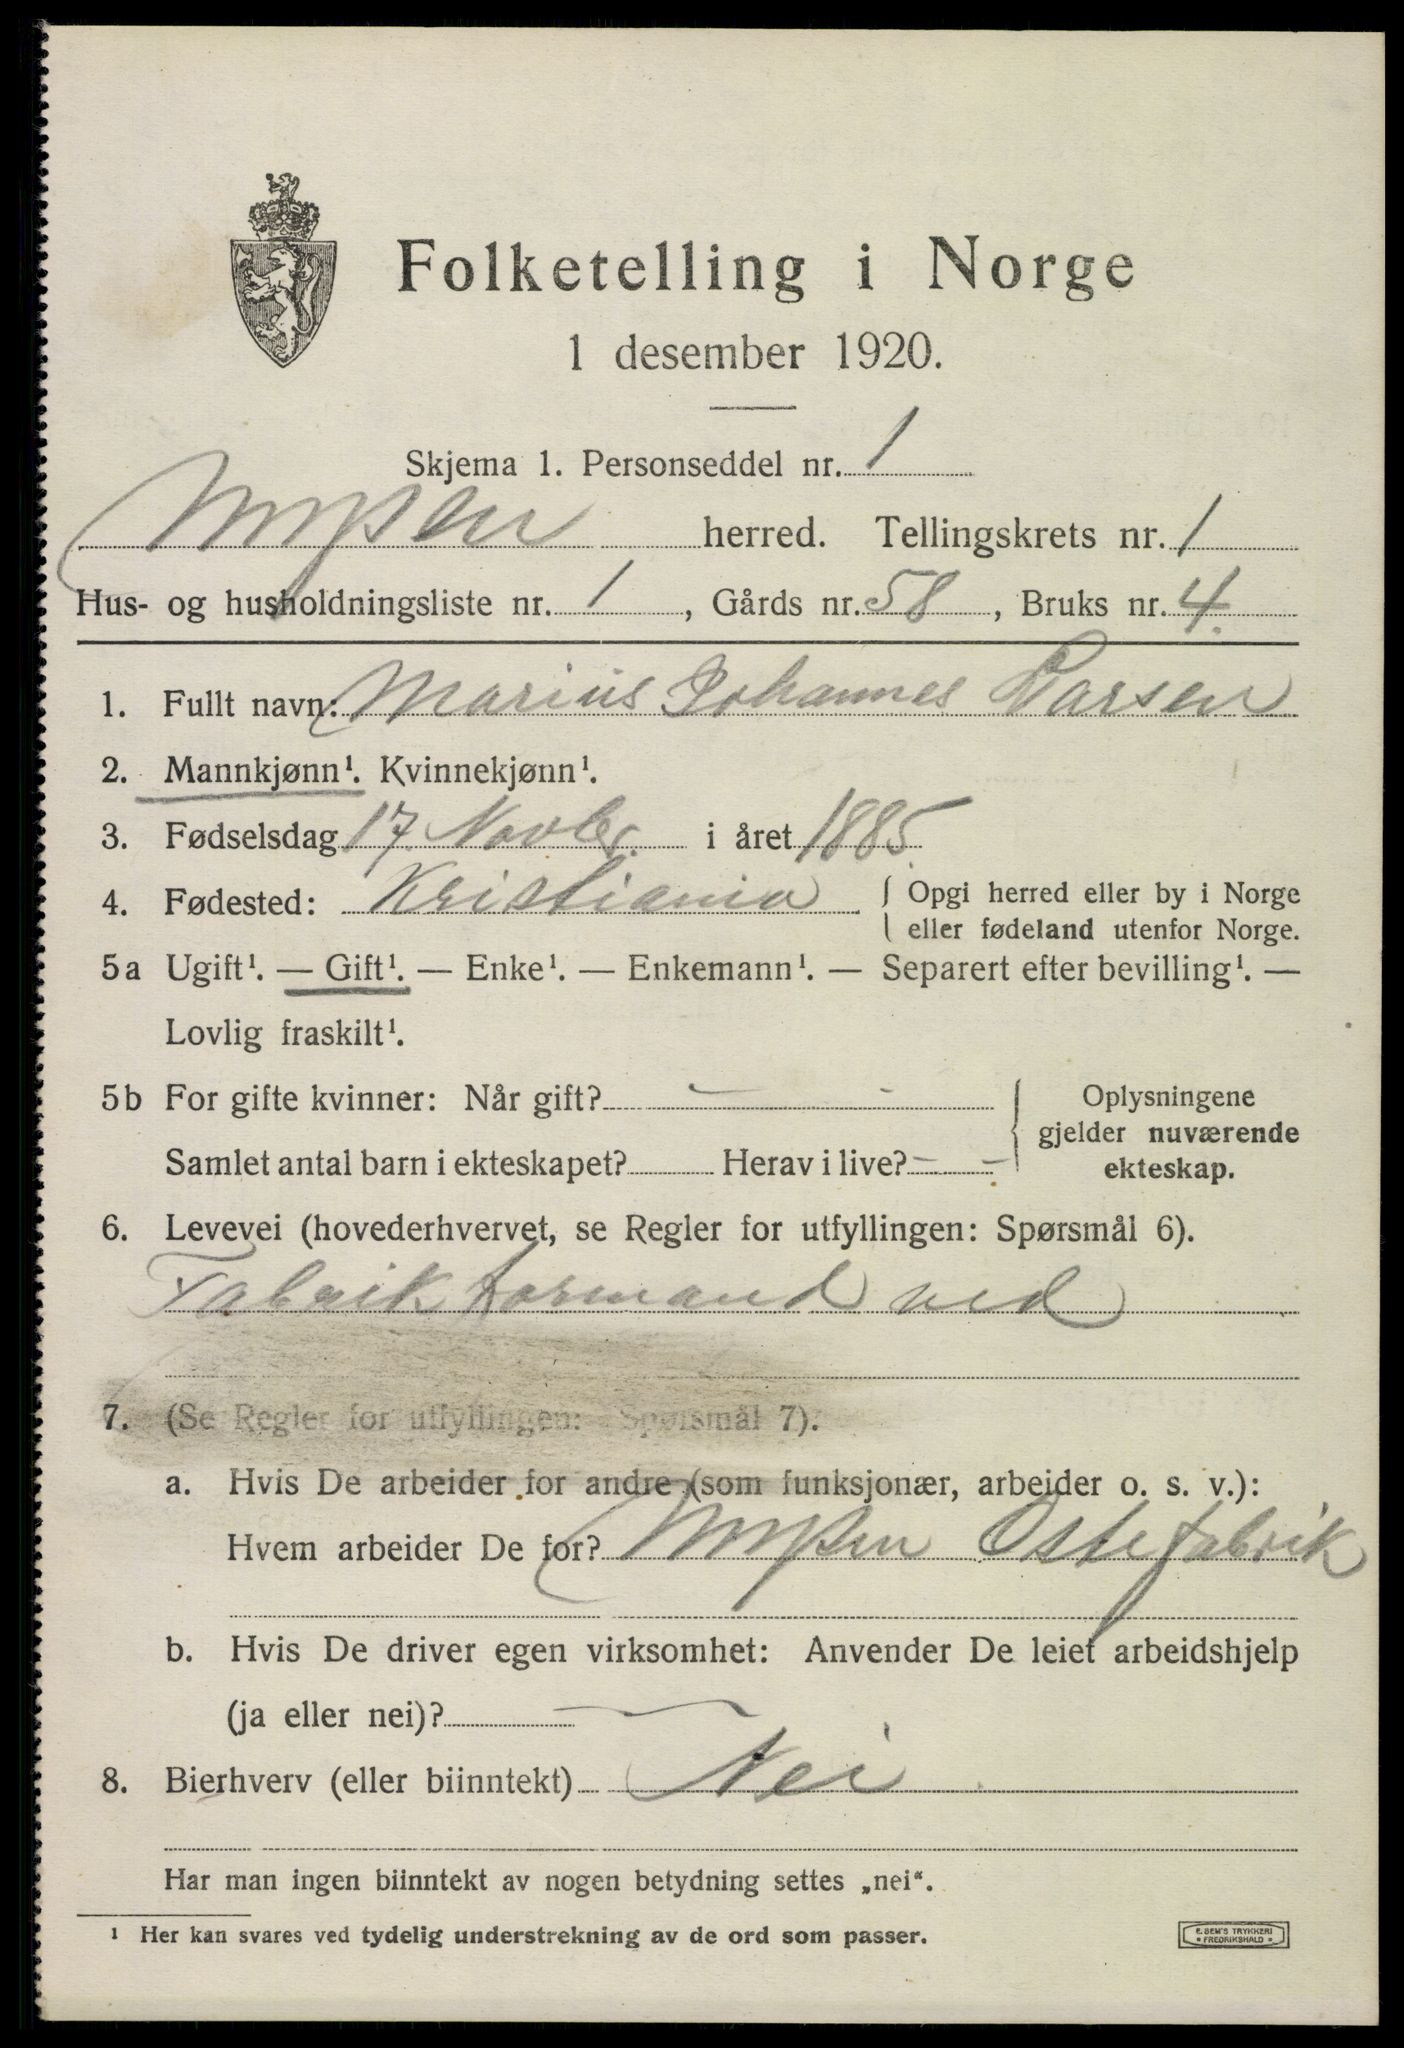 Folketelling i Norge
1 desember 1920.
Skjema 1. Personseddel nr. 1
Mysen herred. Tellingskrets nr. 1
Hus- og husholdningsliste nr. 1, Gårds nr. 58, Bruks nr. 4.
1. Fullt navn: Marius Johannes Larsen
2. Mannkjønn¹. Kvinnekjønn¹.
3. Fødselsdag 17 Novbr. i året 1885.
4. Fødested: Kristiania { Opgi herred eller by i Norge
eller fødeland utenfor Norge.
5a Ugift¹. — Gift¹. — Enke¹. — Enkemann¹. — Separert efter bevilling¹. —
Lovlig fraskilt¹.
5b For gifte kvinner: Når gift? — - } Oplysningene
gjelder nuværende
Samlet antal barn i ekteskapet? Herav i live? - - ekteskap.
6. Levevei (hovederhvervet, se Regler for utfyllingen: Spørsmål 6).
Fabrikformand ved
7. (Se Regler for utfyllingen: Spørsmål 7).
a. Hvis De arbeider for andre (som funksjonær, arbeider o. s. v.):
Hvem arbeider De for? Mysen Ostefabrik
b. Hvis De driver egen virksomhet: Anvender De leiet arbeidshjelp
(ja eller nei)? —
8. Bierhverv (eller biinntekt) Nei
Har man ingen biinntekt av nogen betydning settes „nei“.
¹ Her kan svares ved tydelig understrekning av de ord som passer.
E. SEM'S TRYKKERI
* FREDRIKSHALD *